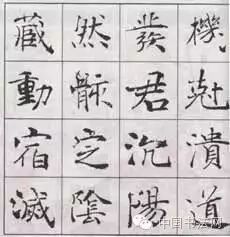 藏然發機
動骸君尅
宿定沉潰
滅陰陽道
中国书法网